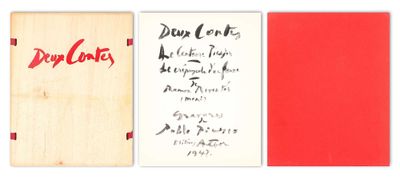 Deux Contes
Deux Contes
Le Centaure Picador
Le crépuscule d'un Faune
de
Ramon Reventós
Gravures
de
Pablo Picasso
1947.